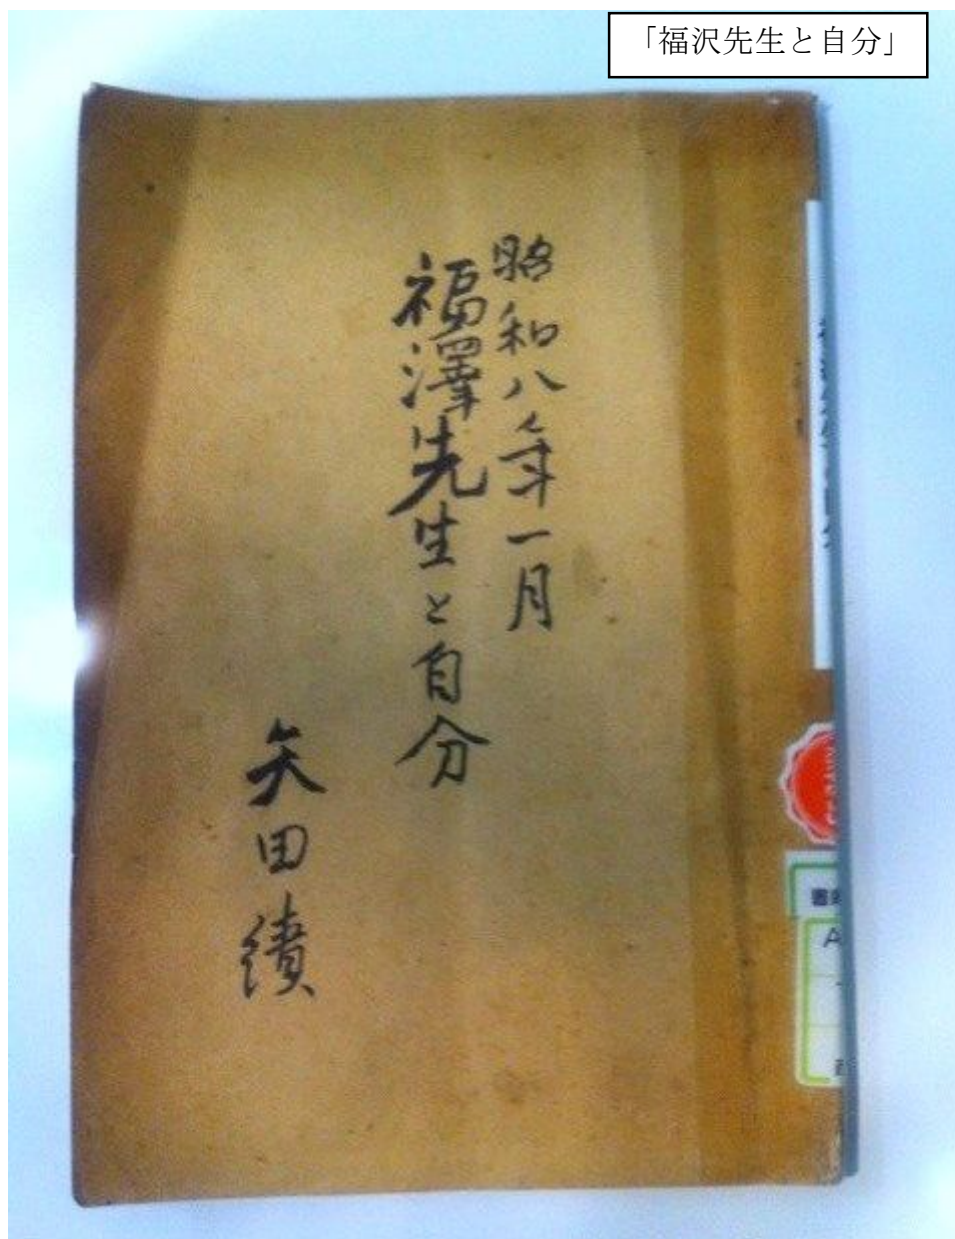 「福沢先生と自分」
昭和八年一月
福澤先生と自分
矢田績